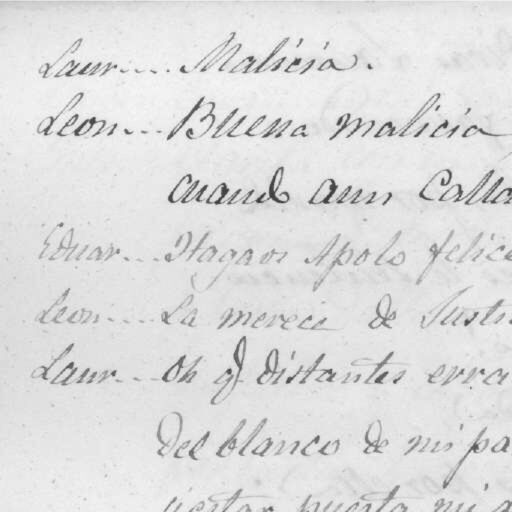 Laur.... Malicia.
Leon... Buena malicia
cuando aun Calla
Eduar... Hagaos Apolo felice
Leon.... La merece de Justi
Laur... Oh q̃ distantes erra
Del blanco de mi pa
puesta mi